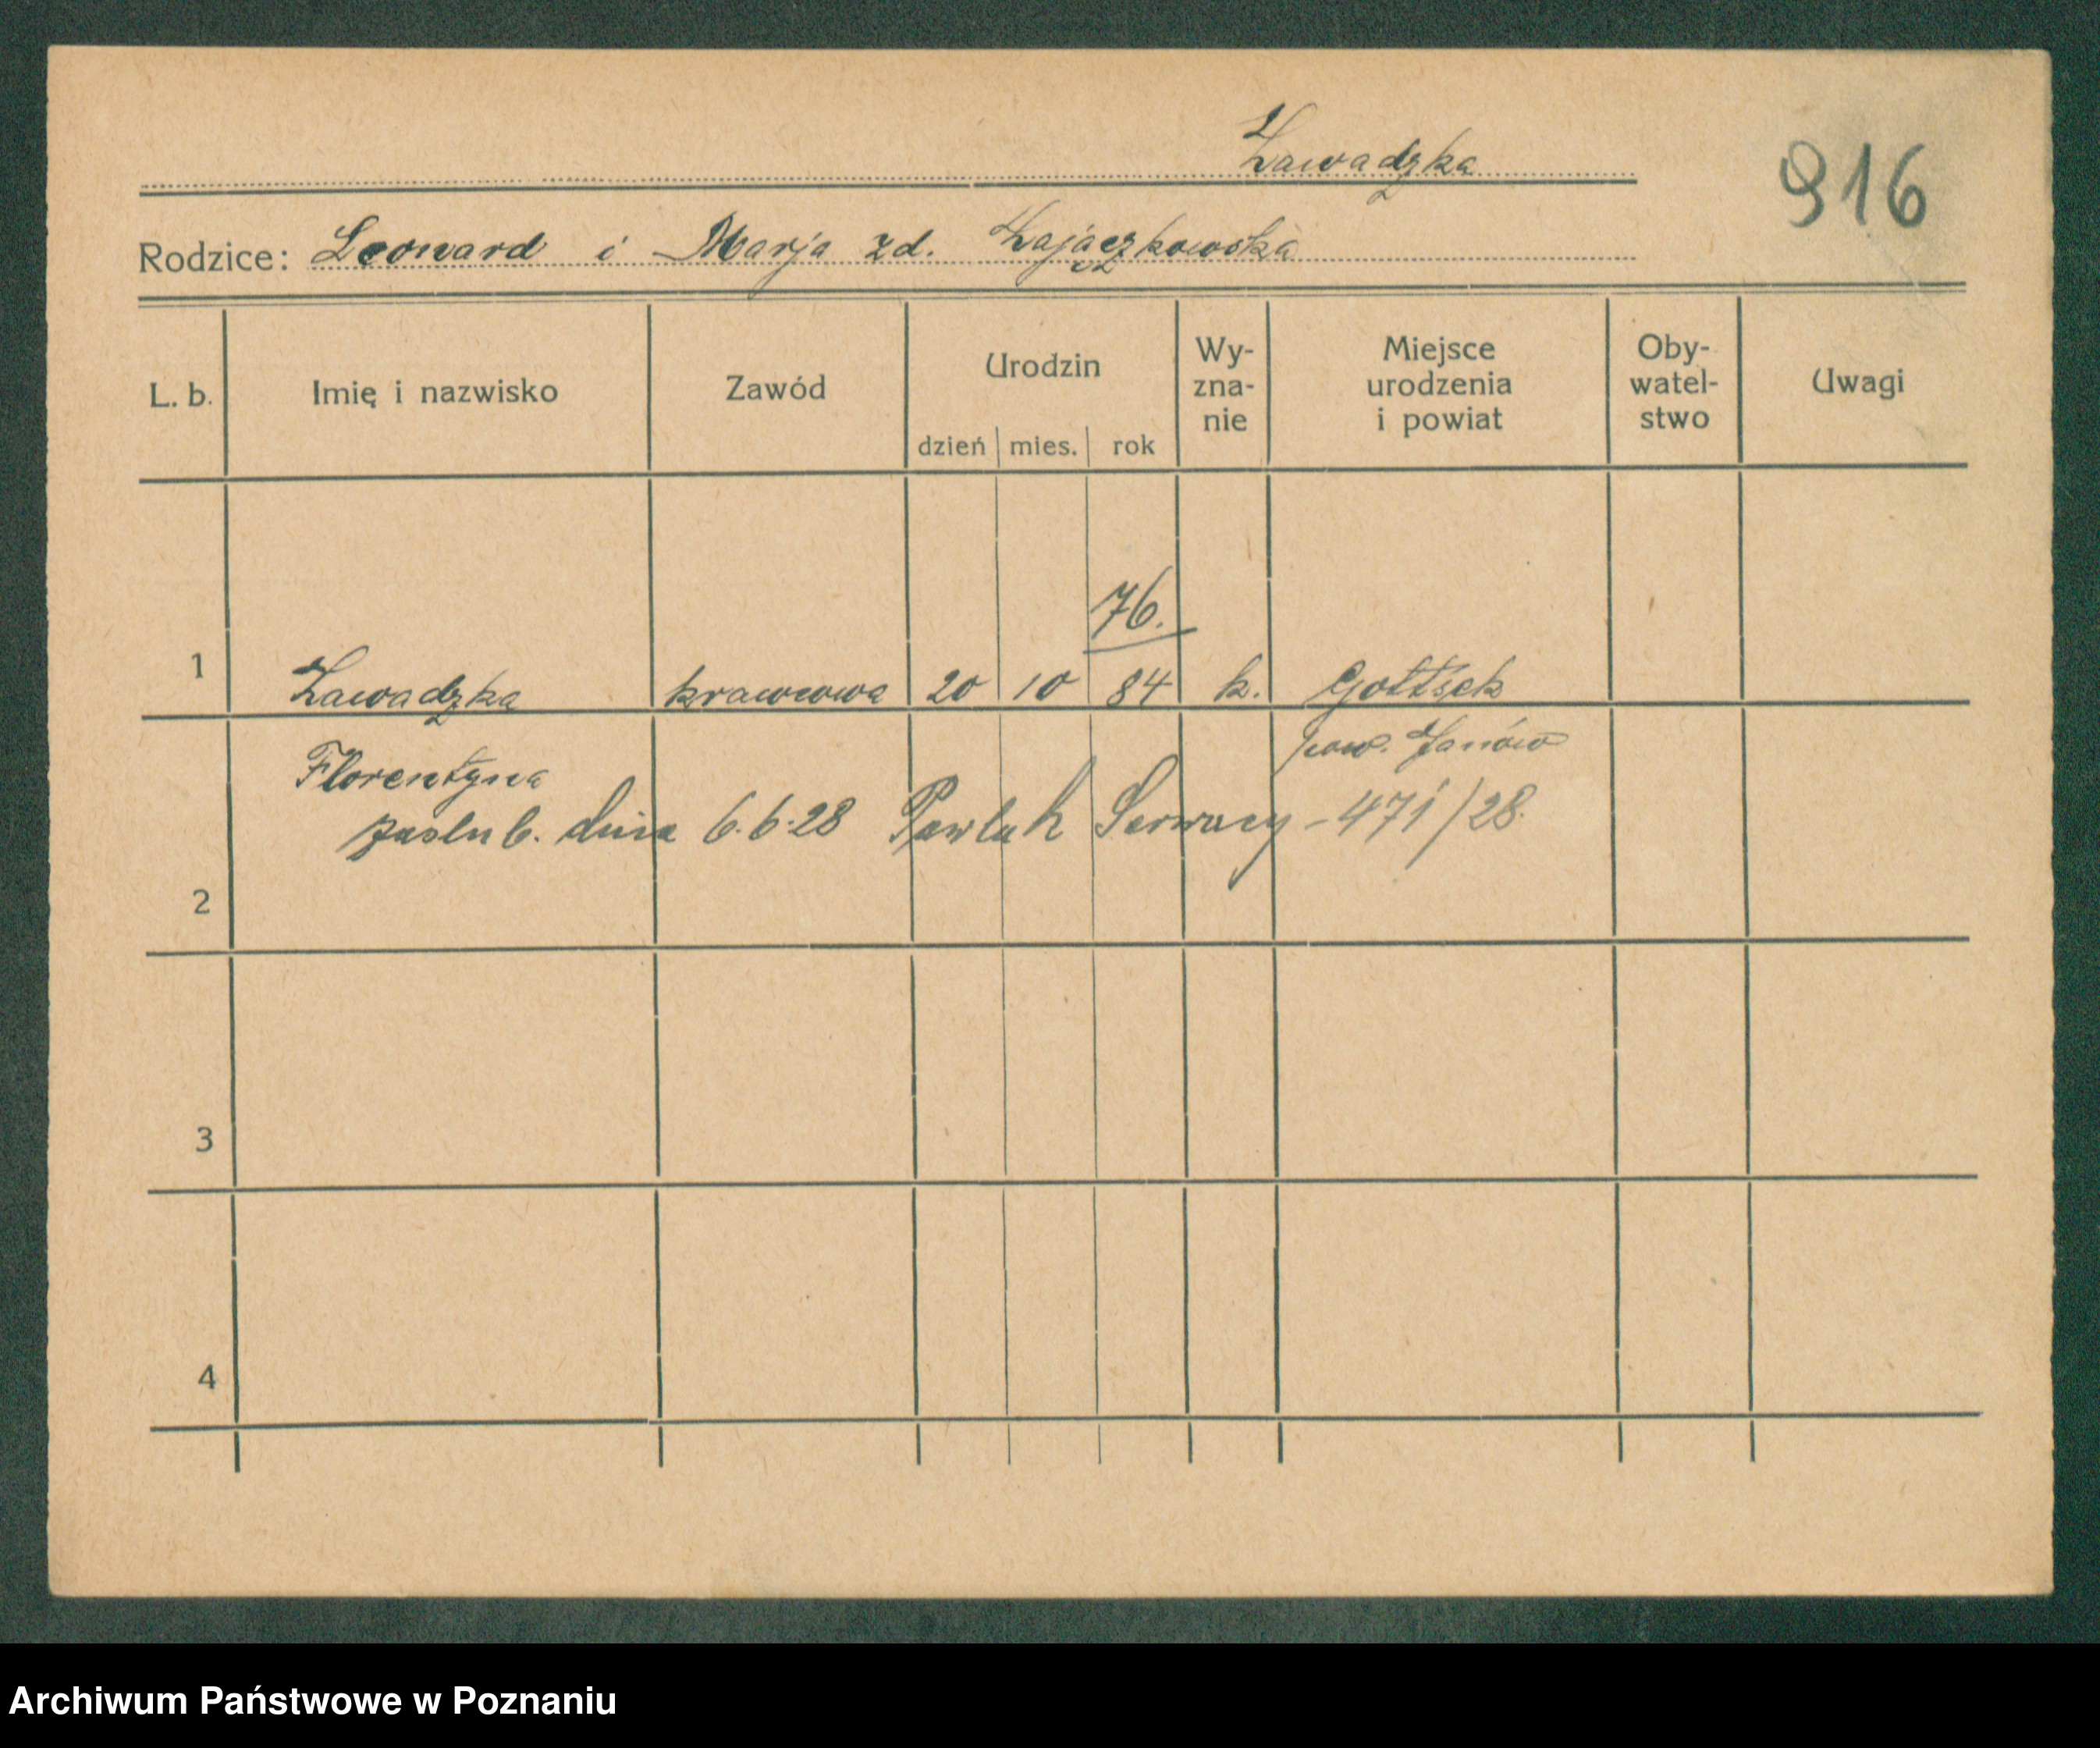 Zawadzka
916
Rodzice: Leonard i Marja zd. Zajączkowska
L. b. Imię i nazwisko Zawód Urodzin dzień mies. rok Wy- zna- nie Miejsce urodzenia i powiat Oby- watel- stwo Uwagi
76.
1 Zawadzka krawcowa 20 10 84 k.
Florentyna pow. Janów
zaślub. dnia 6.6.28 Pawlak Serwacy - 471/28.
2
3
4
Archiwum Państwowe w Poznaniu